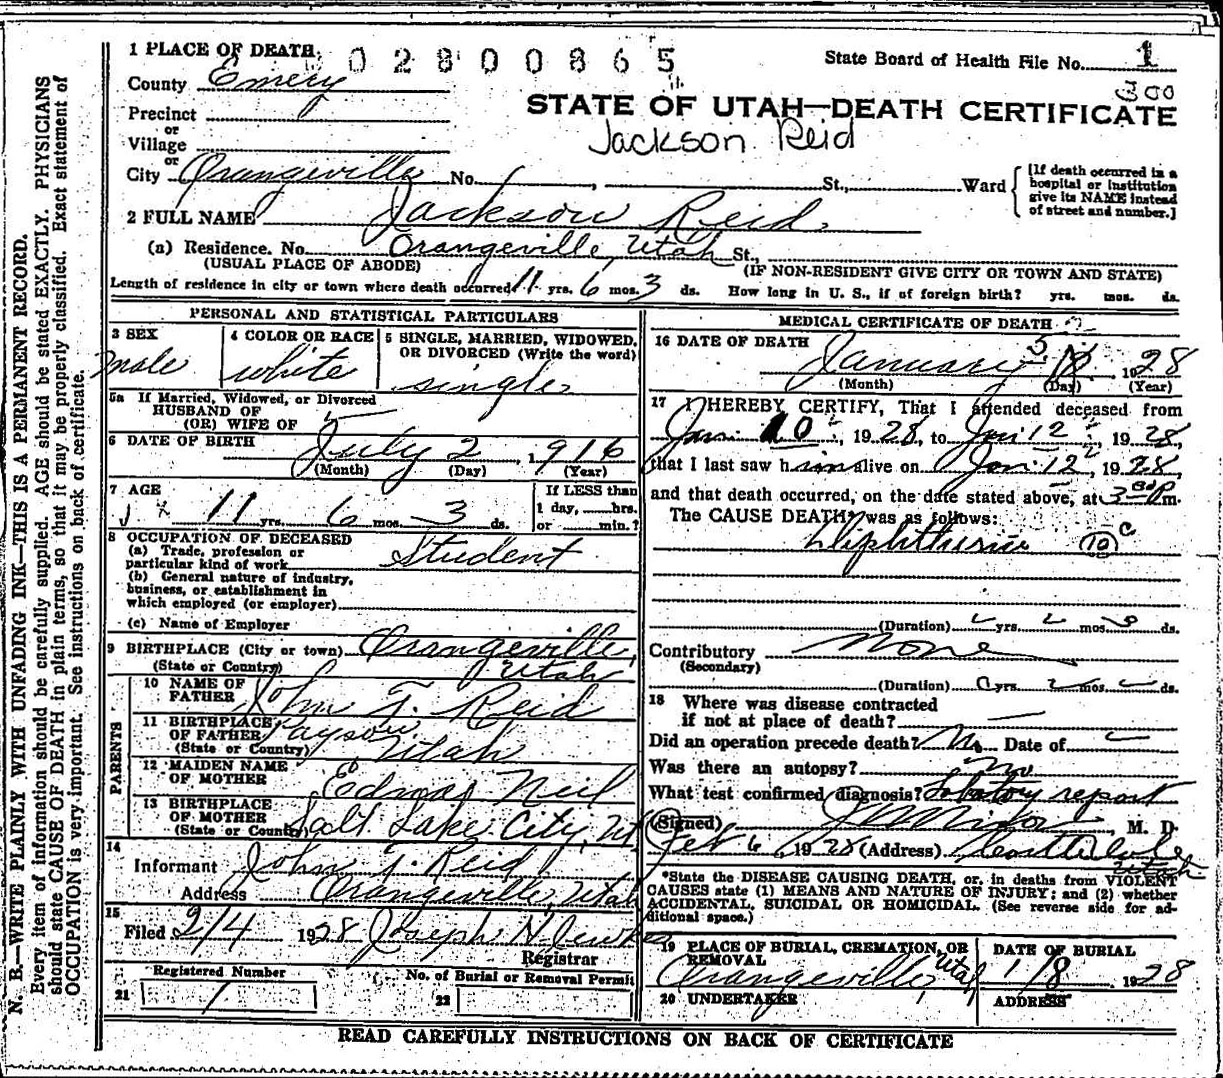 1 PLACE OF DEATH
02800865
State Board of Health File No. 1
300
County Emery
STATE OF UTAH—DEATH CERTIFICATE
Precinct
or
Village
Jackson Reid
or
City Orangeville No. , St., Ward
[If death occurred in a hospital or institution give its NAME instead of street and number.]
2 FULL NAME Jackson Reid
(a) Residence. No. Orangeville, Utah St.,
(USUAL PLACE OF ABODE) (IF NON-RESIDENT GIVE CITY OR TOWN AND STATE)
Length of residence in city or town where death occurred 11 yrs. 6 mos. 3 ds. How long in U. S., if of foreign birth? yrs. mos. ds.
PERSONAL AND STATISTICAL PARTICULARS
3 SEX
male
4 COLOR OR RACE
white
5 SINGLE, MARRIED, WIDOWED, OR DIVORCED (Write the word)
single
5a If Married, Widowed, or Divorced
HUSBAND OF
(OR) WIFE OF
6 DATE OF BIRTH July 2, 1916
(Month) (Day) (Year)
7 AGE
11 yrs. 6 mos. 3 ds.
If LESS than
1 day, hrs.
or min.?
8 OCCUPATION OF DECEASED
(a) Trade, profession or
particular kind of work Student
(b) General nature of industry,
business, or establishment in
which employed (or employer)
(c) Name of Employer
9 BIRTHPLACE (City or town) Orangeville,
(State or Country) Utah
PARENTS
10 NAME OF
FATHER John T. Reid
11 BIRTHPLACE
OF FATHER Payson
(State or Country) Utah
12 MAIDEN NAME
OF MOTHER Edna Neil
13 BIRTHPLACE
OF MOTHER
(State or Country) Salt Lake City, Ut
14
Informant John T. Reid
Address Orangeville, Utah
15
Filed 2/4 1928 Joseph H.
Registrar
Registered Number
21 1
No. of Burial or Removal Permit
22
MEDICAL CERTIFICATE OF DEATH
16 DATE OF DEATH
January 5 1928
(Month) (Day) (Year)
17 I HEREBY CERTIFY, That I attended deceased from
Jan. 10, 1928, to Jan 12, 1928,
that I last saw him alive on Jan. 12, 1928,
and that death occurred, on the date stated above, at 3 P m.
The CAUSE DEATH* was as follows:
Diphtheria 10 c
(Duration) yrs. mos. ds.
Contributory None
(Secondary)
(Duration) yrs. mos. ds.
18 Where was disease contracted
if not at place of death?
Did an operation precede death? No Date of
Was there an autopsy? no
What test confirmed diagnosis? report
(Signed) , M. D.
Feb 6, 1928 (Address) Castle Dale
Utah
*State the DISEASE CAUSING DEATH, or, in deaths from VIOLENT
CAUSES state (1) MEANS AND NATURE OF INJURY; and (2) whether
ACCIDENTAL, SUICIDAL OR HOMICIDAL. (See reverse side for ad-
ditional space.)
19 PLACE OF BURIAL, CREMATION, OR
REMOVAL
Orangeville, Utah
DATE OF BURIAL
1/8 1928
20 UNDERTAKER
ADDRESS
READ CAREFULLY INSTRUCTIONS ON BACK OF CERTIFICATE
N. B.—WRITE PLAINLY WITH UNFADING INK—THIS IS A PERMANENT RECORD.
Every item of information should be carefully supplied. AGE should be stated EXACTLY. PHYSICIANS
should state CAUSE OF DEATH in plain terms, so that it may be properly classified. Exact statement of
OCCUPATION is very important. See instructions on back of certificate.